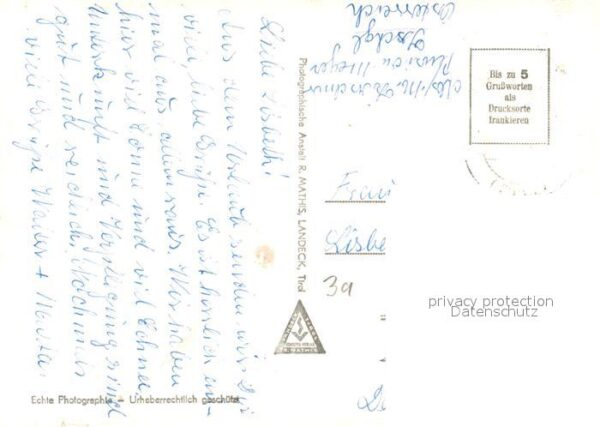 Liebe Lisbeth!
Aus dem Urlaub senden wir Dir
viele liebe Grüße. Es ist herrlich ein-
mal aus allem raus. Wir haben
hier viel Sonne und viel Schnee,
Unterkunft und Verpflegung sind
gut und reichlich. Nochmals
viele Grüße
Echte Photographie – Urheberrechtlich geschützt
Photographische Anstalt R. MATHIS, LANDECK, Tirol
R. MATHIS
Pension Meyer
Ischgl
Österreich
Bis zu 5
Grußworten
als
Drucksorte
frankieren
Frau
Lisbe
3a
privacy protection
Datenschutz